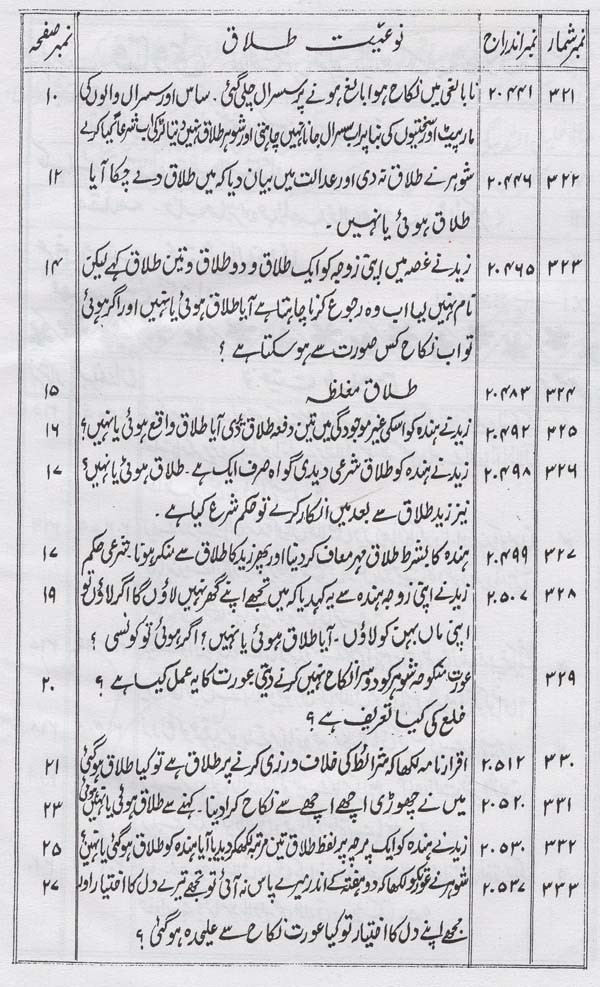 نمبر شمار نمبر اندراج نوعیّت طلاق نمبر صفحہ
۳۲۱ ۲۰۴۴۱ نابالغی میں نکاح ہوا بالغ ہونے پر سسرال چلی گئی ۔ ساس اور سسرال والوں کی ۱۰
مار پیٹ اور سختیوں کی بنا پر اب سسرال جانا نہیں چاہتی اور شوہر طلاق نہیں دیتا لڑکی اب شرعاً کیا کرے
۳۲۲ ۲۰۴۴۶ شوہر نے طلاق نہ دی اور عدالت میں بیان دیا کہ میں طلاق دے چکا آیا ۱۲
طلاق ہوئی یا نہیں ۔
۳۲۳ ۲۰۴۶۵ زید نے غصہ میں اپنی زوجہ کو ایک طلاق و دو طلاق و تین طلاق کہے لیکن ۱۴
نام نہیں لیا اب وہ رجوع کرنا چاہتا ہے آیا طلاق ہوئی یا نہیں اور اگر ہوئی
تو اب نکاح کس صورت سے ہو سکتا ہے ؟
۳۲۴ ۲۰۴۸۳ طلاق مغلظہ ۱۵
۳۲۵ ۲۰۴۹۲ زید نے ہندہ کو اسکی غیر موجودگی میں تین دفعہ طلاق دی آیا طلاق واقع ہوئی یا نہیں؟ ۱۶
۳۲۶ ۲۰۴۹۸ زید نے ہندہ کو طلاق شرعی دیدی گواہ صرف ایک ہے ۔ طلاق ہوئی یا نہیں؟ ۱۷
نیز زید طلاق سے بعد میں انکار کرے تو حکم شرع کیا ہے ۔
۳۲۷ ۲۰۴۹۹ ہندہ کا بشرط طلاق مہر معاف کر دینا اور پھر زید کا طلاق سے منکر ہونا ۔ شرعی حکم ۱۷
۳۲۸ ۲۰۵۰۷ زید نے اپنی زوجہ ہندہ سے یہ کہدیا کہ میں تجھے اپنے گھر نہیں لاؤں گا اگر لاؤں تو ۱۹
اپنی ماں بہن کو لاؤں ۔ آیا طلاق ہوئی یا نہیں؟ اگر ہوئی تو کونسی ؟
۳۲۹ عورت منکوحہ شوہر کو دوسرا نکاح نہیں کرنے دیتی عورت کا یہ عمل کیسا ہے ؟ ۲۰
خلع کی کیا تعریف ہے ؟
۳۳۰ ۲۰۵۱۲ اقرار نامہ لکھا کہ شرائط کی خلاف ورزی کرنے پر طلاق ہے تو کیا طلاق ہو گئی ۲۱
۳۳۱ ۲۰۵۲۰ میں نے چھوڑی اچھے اچھے سے نکاح کرا دینا ۔ کہنے سے طلاق ہوئی یا نہیں ہوئی ۲۳
۳۳۲ ۲۰۵۳۰ زید نے ہندہ کو ایک پرچہ پر لفظ طلاق تین مرتبہ لکھ کر دیدیا آیا ہندہ کو طلاق ہو گئی یا نہیں ۲۵
۳۳۳ ۲۰۵۳۷ شوہر نے عورت کو لکھا کہ دو ہفتہ کے اندر میرے پاس نہ آئی تو تجھے تیرے دل کا اختیار اور ۲۷
مجھے اپنے دل کا اختیار تو کیا عورت نکاح سے علیحدہ ہو گئی ؟